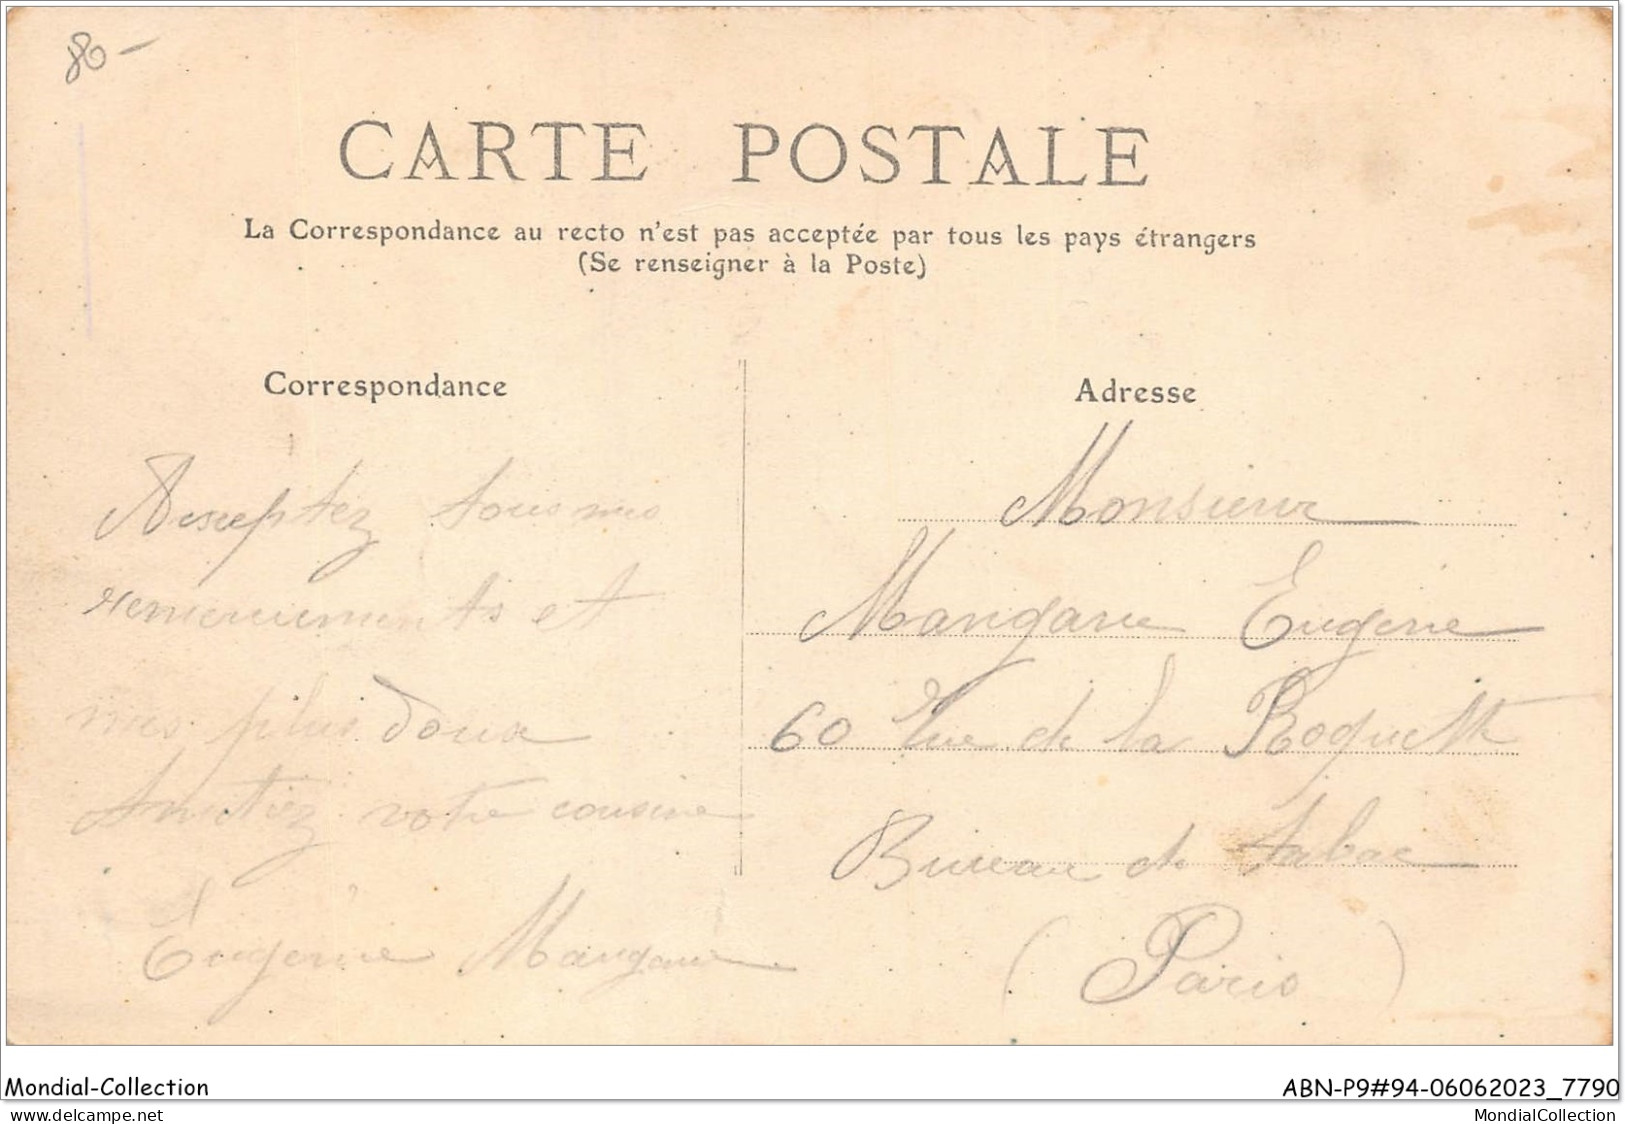 80-
CARTE POSTALE
La Correspondance au recto n'est pas acceptée par tous les pays étrangers
(Se renseigner à la Poste)
Correspondance
Adresse
Aseuptez tous mes
remerciements et
mes plus doux
Amitiez votre cousine
Eugenie Mangane
Monsieur
Mangane Eugene
60 Rue de la Roquette
Bureau de tabac
(Paris)
Mondial-Collection
ABN-P9#94-06062023_7790
www.delcampe.net
MondialCollection